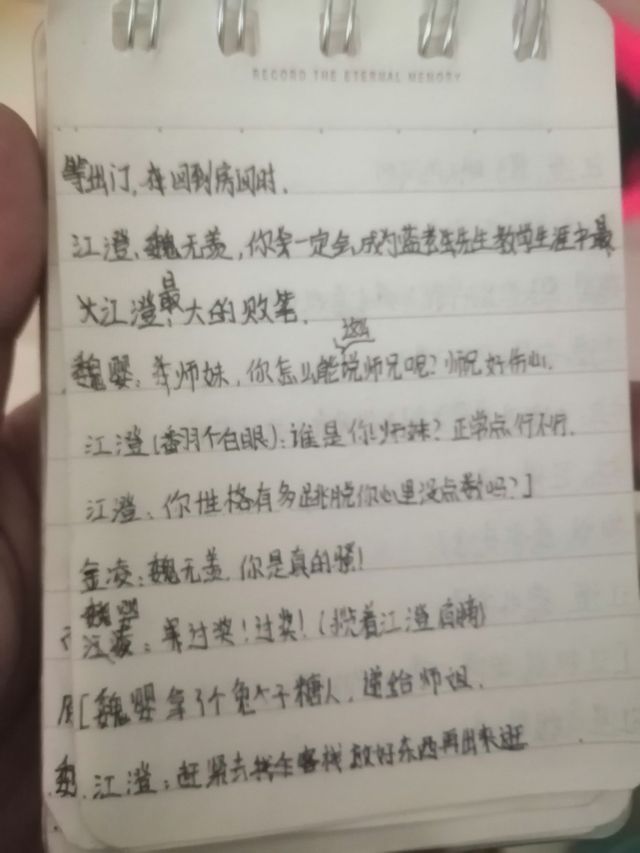 RECORD THE ETERNAL MEMORY
等出门,在回到房间时.
江澄:魏无羡,你一定会成为蓝老先生教学生涯中最
大江澄:最大的败笔.
魏婴:师妹,你怎么能这么说师兄呢?师兄好伤心.
江澄(翻个白眼):谁是你师妹?正常点行不行.
江澄:你性格有多跳脱你心里没点数吗?]
金凌:魏无羡,你是真的骚!
魏婴
江凌:过奖!过奖!(揽着江澄肩膀)
[魏婴拿了个兔子糖人,递给师姐.
江澄:赶紧去客栈放好东西再出来逛